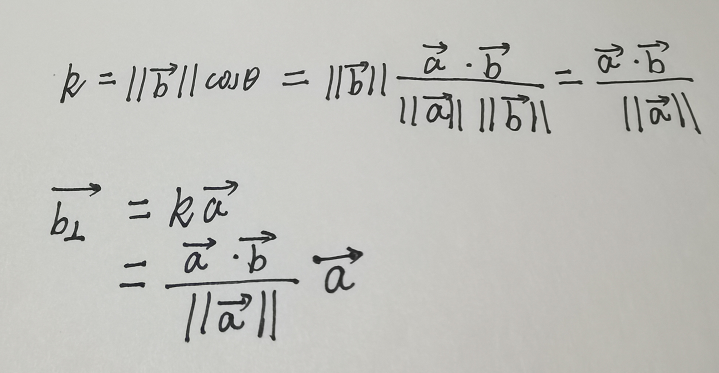 k = ||b⃗|| cosθ = ||b⃗|| (a⃗ · b⃗)/(||a⃗|| ||b⃗||) = (a⃗ · b⃗)/(||a⃗||)
b⊥⃗ = k a⃗
= (a⃗ · b⃗)/(||a⃗||) a⃗